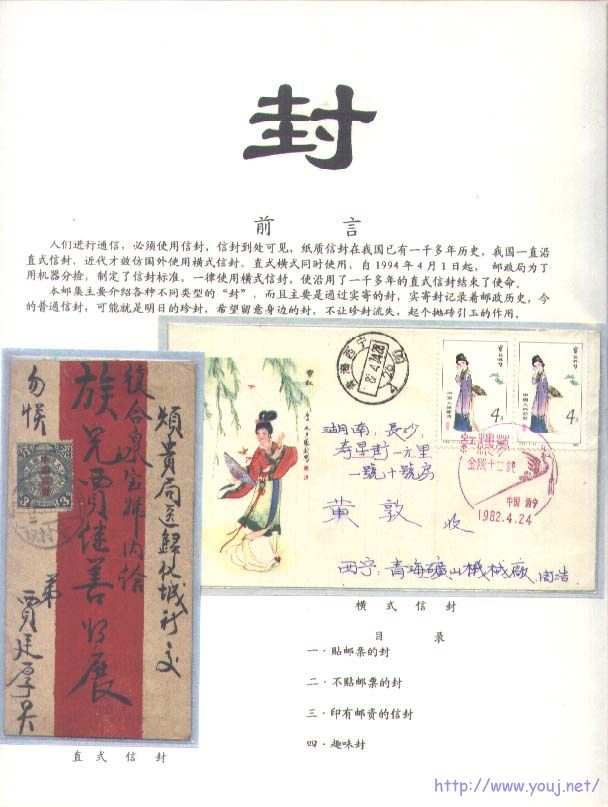 封
前　言
人们进行通信，必须使用信封，信封到处可见，纸质信封在我国已有一千多年历史，我国一直沿
直式信封，近代才效仿国外使用横式信封，直式横式同时使用，自1994年4月1日起，邮政局为了
用机器分捡，制定了信封标准，一律使用横式信封，使沿用了一千多年的直式信封结束了使命。
本邮集主要介绍各种不同类型的“封”，而且主要是通过实寄的封，实寄封记录着邮政历史，今
的普通信封，可能就是明日的珍封，希望留意身边的封，不让珍封流失，起个抛砖引玉的作用。
煩貴局送歸化城新交
復合泉宝婦内詒
族兄賈佳善收展
勿悮
弟
賈廷厚吴
湖南，長沙，
寿星街一方里
一號十號房
黄敦 收
西宁：青海礦山機械廠
4分
中国人民邮政
4分
中国人民邮政
红楼梦
金陵十二釵
中国 西宁
1982.4.24
横式信封
目　录
一·贴邮票的封
二·不贴邮票的封
三·印有邮资的信封
四·趣味封
直式信封
http://www.youj.net/